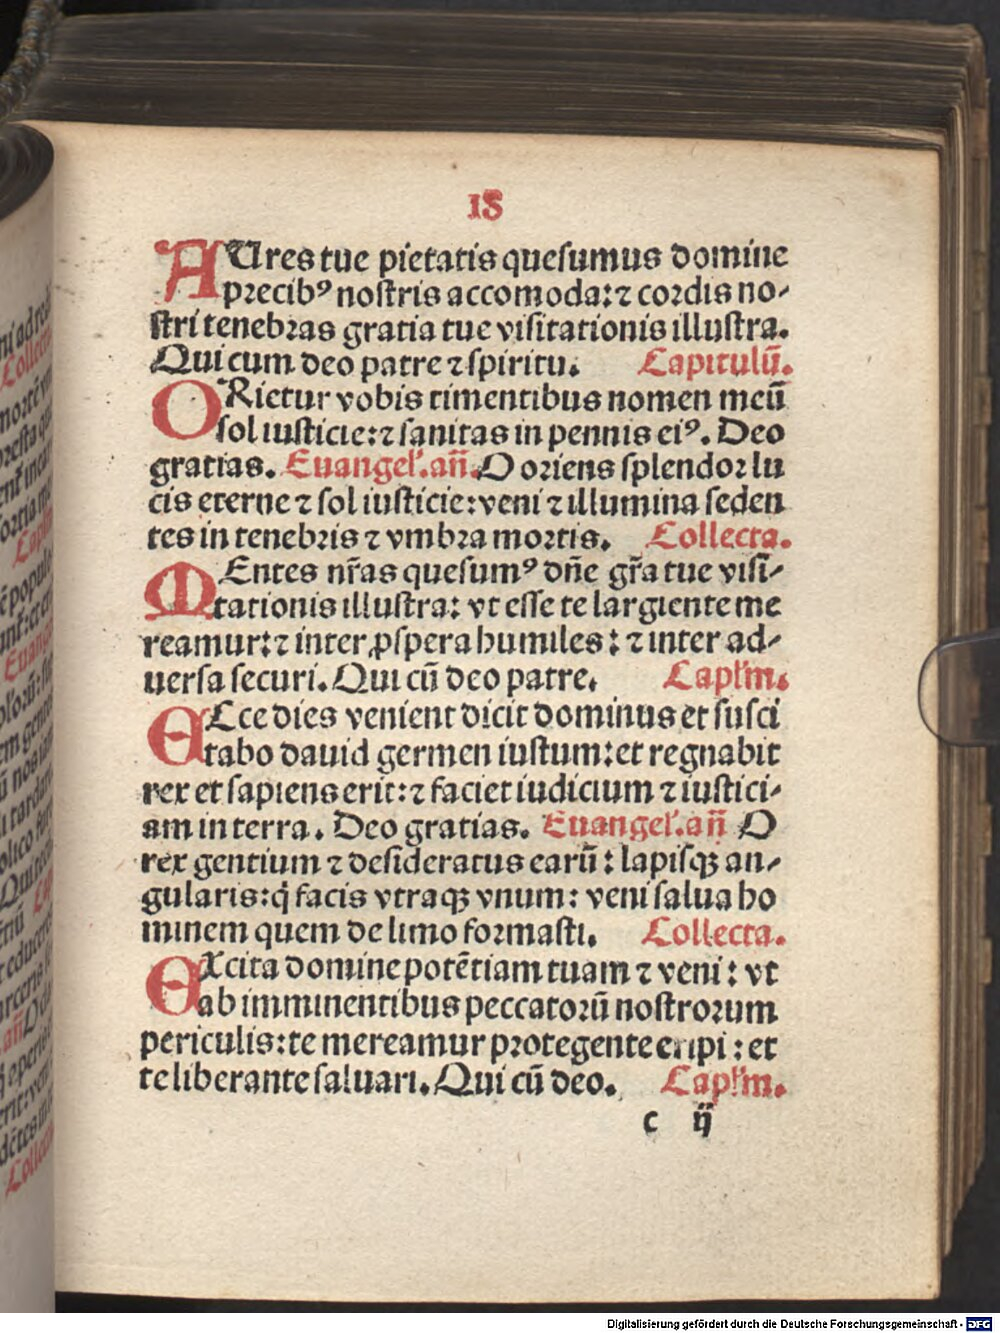 18
AUres tue pietatis quesumus domine
precibꝰ nostris accomoda: ⁊ cordis no-
stri tenebras gratia tue visitationis illustra.
Qui cum deo patre ⁊ spiritu. Capitulū.
ORietur vobis timentibus nomen meū
sol iusticie: ⁊ sanitas in pennis eiꝰ. Deo
gratias. Euangel'. an̄. O oriens splendor lu
cis eterne ⁊ sol iusticie: veni ⁊ illumina seden
tes in tenebris ⁊ vmbra mortis. Collecta.
MEntes nr̄as quesumꝰ dn̄e gr̄a tue visi-
tationis illustra: vt esse te largiente me
reamur: ⁊ inter ꝓspera humiles: ⁊ inter ad-
uersa securi. Qui cū deo patre. Capl'm.
ECce dies venient dicit dominus et susci
tabo dauid germen iustum: et regnabit
rex et sapiens erit: ⁊ faciet iudicium ⁊ iustici-
am in terra. Deo gratias. Euangel'. an̄ O
rex gentium ⁊ desideratus earū: lapisqꝫ an-
gularis: q̇ facis vtraqꝫ vnum: veni salua ho
minem quem de limo formasti. Collecta.
EXcita domine potētiam tuam ⁊ veni: vt
ab imminentibus peccatorū nostrorum
periculis: te mereamur protegente eripi: et
te liberante saluari. Qui cū deo. Capl'm.
c ij
Digitalisierung gefördert durch die Deutsche Forschungsgemeinschaft - DFG